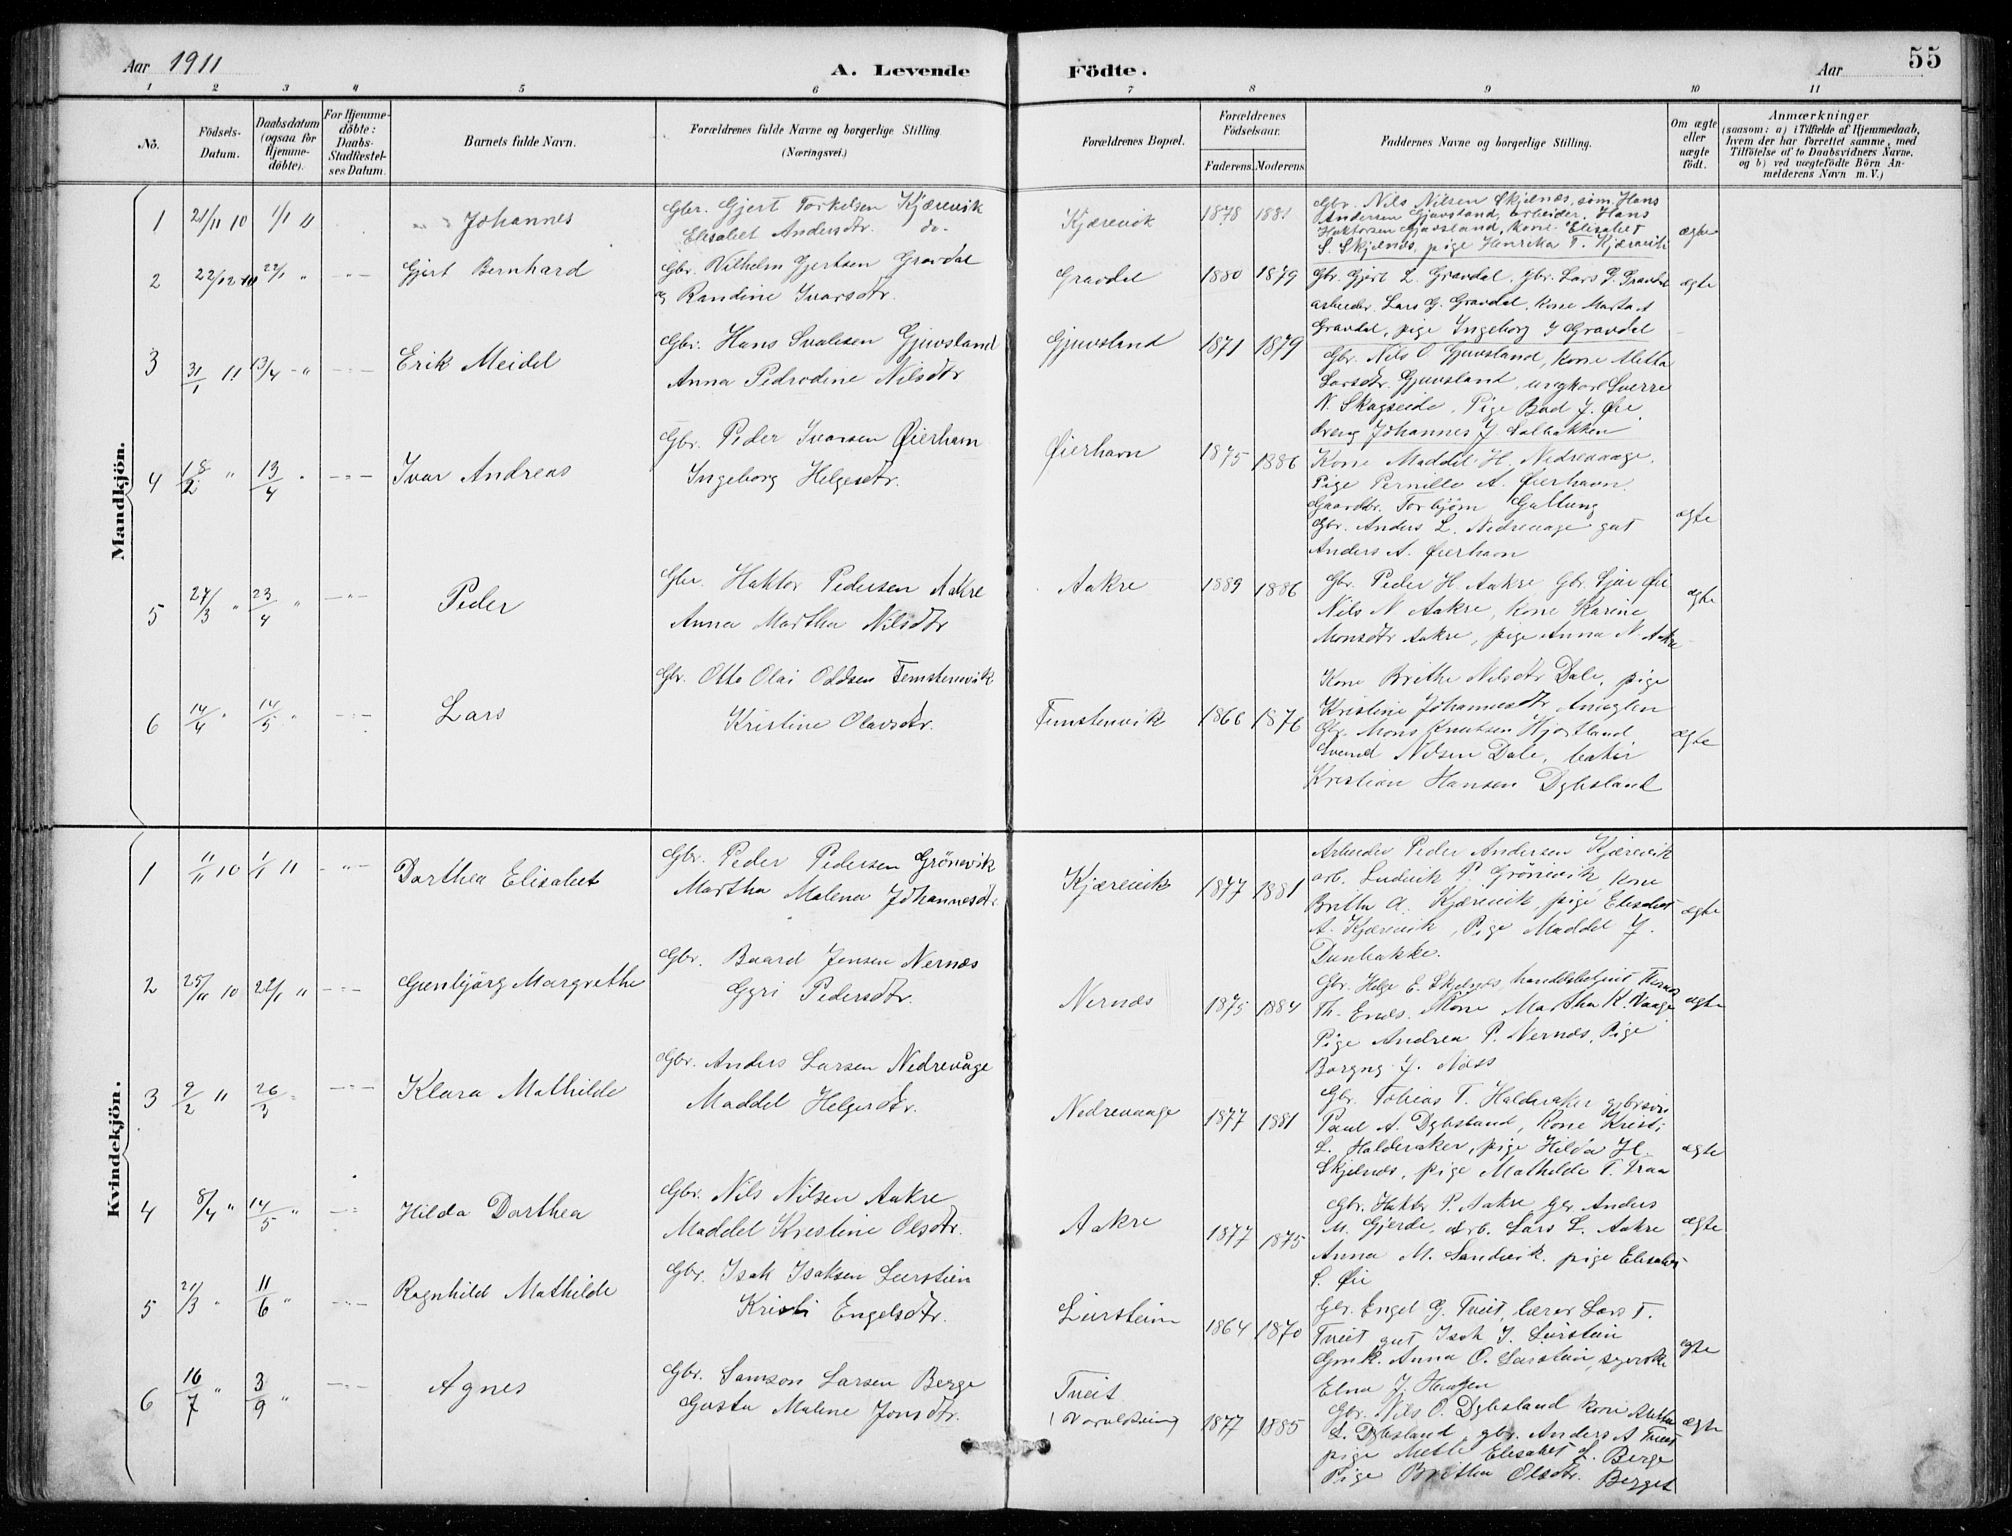 Aar 1911
A. Levende
Födte.
Aar
55
1 2 3 4 5 6 7 8 9 10 11
No.
Födsels-Datum.
Daabsdatum (ogsaa for Hjemmedöbte).
For Hjemmedöbte: Daabs-Stadfæstelses Datum.
Barnets fulde Navn.
Forældrenes fulde Navne og borgerlige Stilling. (Næringsvei.)
Forældrenes Bopæl.
Forældrenes Födselsaar.
Faderens. Moderens
Faddernes Navne og borgerlige Stilling.
Om ægte eller uægte födt.
Anmærkninger
(saasom: a) i Tilfælde af Hjemmedaab, hvem der har forrettet samme, med Tilföielse af to Daabsvidners Navne, og b) ved uægtefödte Börn Anmelderens Navn m. V.)
Mandkjön.
1 21/11 10 1/1 11 Johannes
Gbr. Gjert Torkelsen Kjærevik
Elisabet Andersdtr. do.
Kjærevik 1878 1881
Gbr. Nils Nilsen Skjelnæs, søm. Hans
Andersen Gjuvsland, arbeider Hans
Haktorsen Gjuvsland, kone Elisabet
S. Skjelnæs, pige Henrika T. Kjærevik
ægte
2 22/12 10 22/1 " Gjert Bernhard
Gbr. Vilhelm Gjertsen Gravdal
og Randine Ivarsdtr.
Gravdal 1880 1879
Gbr. Gjert L. Gravdal, Gbr. Lars G. Gravdal
arbeider Lars G. Gravdal, Kone Marta
Gravdal, pige Ingeborg J Gravdal
ægte
3 31/1 11 13/4 " Erik Meidel
Gbr. Hans Svalesen Gjuvsland
Anna Pedrodine Nilsdtr
Gjuvsland 1871 1879
Gbr. Nils O Gjuvsland, Kone Metha
Larsdtr. Gjuvsland, ungkarl Sverre
N. Skagseide, Pige J. Øie
dreng Johannes J Solbakken
4 18/2 " 13/4 " Ivar Andreas
Gbr. Peder Ivarsen Øierhavn
Ingeborg Helgesdtr.
Øierhavn 1875 1886
Kone Maddel H. Nedrevaage
Pige Pernille A. Øierhavn
Gaardbr. Torbjørn Galtung
Gbr. Anders L. Nedrevaage gut
Anders A. Øierhavn
ægte
5 27/3 " 23/4 " Peder
Gbr. Haktor Pedersen Aakre
Anna Martha Nilsdtr
Aakre 1889 1886
Gbr. Peder H. Aakre Gbr. Sjur Øie
Nils N Aakre, Kone Karine
Monsdtr Aakre, pige Anna N. Aakre
ægte
6 14/4 " 14/5 " Lars
Gbr. Otto Olai Oddsen Femstenevik
Kristine Olavsdtr.
Femstenevik 1866 1876
Kone Brithe Nilsdtr Dale, pige
Kristine Johannesdtr
Gbr. Mons Knutsen Hjortland
Svend Nilsen Dale,
Kristian Hansen Dybsland
ægte
Kvindekjön.
1 11/11 10 1/1 11 Dorthea Elisabet
Gbr. Peder Pedersen Grönevik
Martha Malena Johannesdtr
Kjærevik 1877 1881
Arbeider Peder Andersen Kjærevik
arb. Ludvik P. Grönevik, kone
Britha A. Kjærevik, pige Elisabet
A. Kjærevik, Pige Maddel J.
Dunhakke.
ægte
2 25/11 10 22/1 " Gunbjörg Margrethe
Gbr. Baard Jensen Nernæs
Gyri Pedersdtr.
Nernæs 1875 1884
Gbr. Helge E. Skjelnæs, handelsbetjent Thomas
Th. Enæs. Kone Martha K. Vaage
Pige Andrea P. Nernæs, Pige
Borgny J. Næss
ægte
3 9/2 " 26/3 " Klara Mathilde
Gbr. Anders Larsen Nedrevåge
Maddel Helgesdtr.
Nedrevaage 1877 1881
Gbr. Tobias T. Halderaker
Paul A. Dybsland, Kone Kristi
L. Halderaker, pige Hilda H.
Skjelnæs, pige Mathilde T. Traa
ægte
4 8/4 " 14/5 " Hilda Dorthea
Gbr. Nils Nilsen Aakre
Maddel Kristine Olsdtr.
Aakre 1877 1875
Gbr. Haktor P. Aakre Gbr Anders
M. Gjerde, Arb. Lars L. Aakre
Anna M. Sandvik. pige Elisabet
L. Øie
ægte
5 21/3 " 11/6 " Ragnhild Mathilde
Gbr. Isak Isaksen Lurstein
Kristi Engelsdtr.
Lurstein 1864 1870
Gbr. Engel G. Tveit, lærer Lars T.
Tveit gut Isak I. Lurstein
Gmk. Anna O. Lurstein, syerske
Elna J. Haugen
ægte
6 16/7 3/9 " Agnes
Gbr. Samson Larsen Berge
Gusta Malene Jonsdtr.
Tveit
(Varaldsøen) 1877 1885
Gbr. Nils O. Dybsland kone Metha
L. Dybsland, gbr. Anders A Tveit
pige Mette Elisabet L. Berge
Pige Britha Olsdtr. Berget
ægte